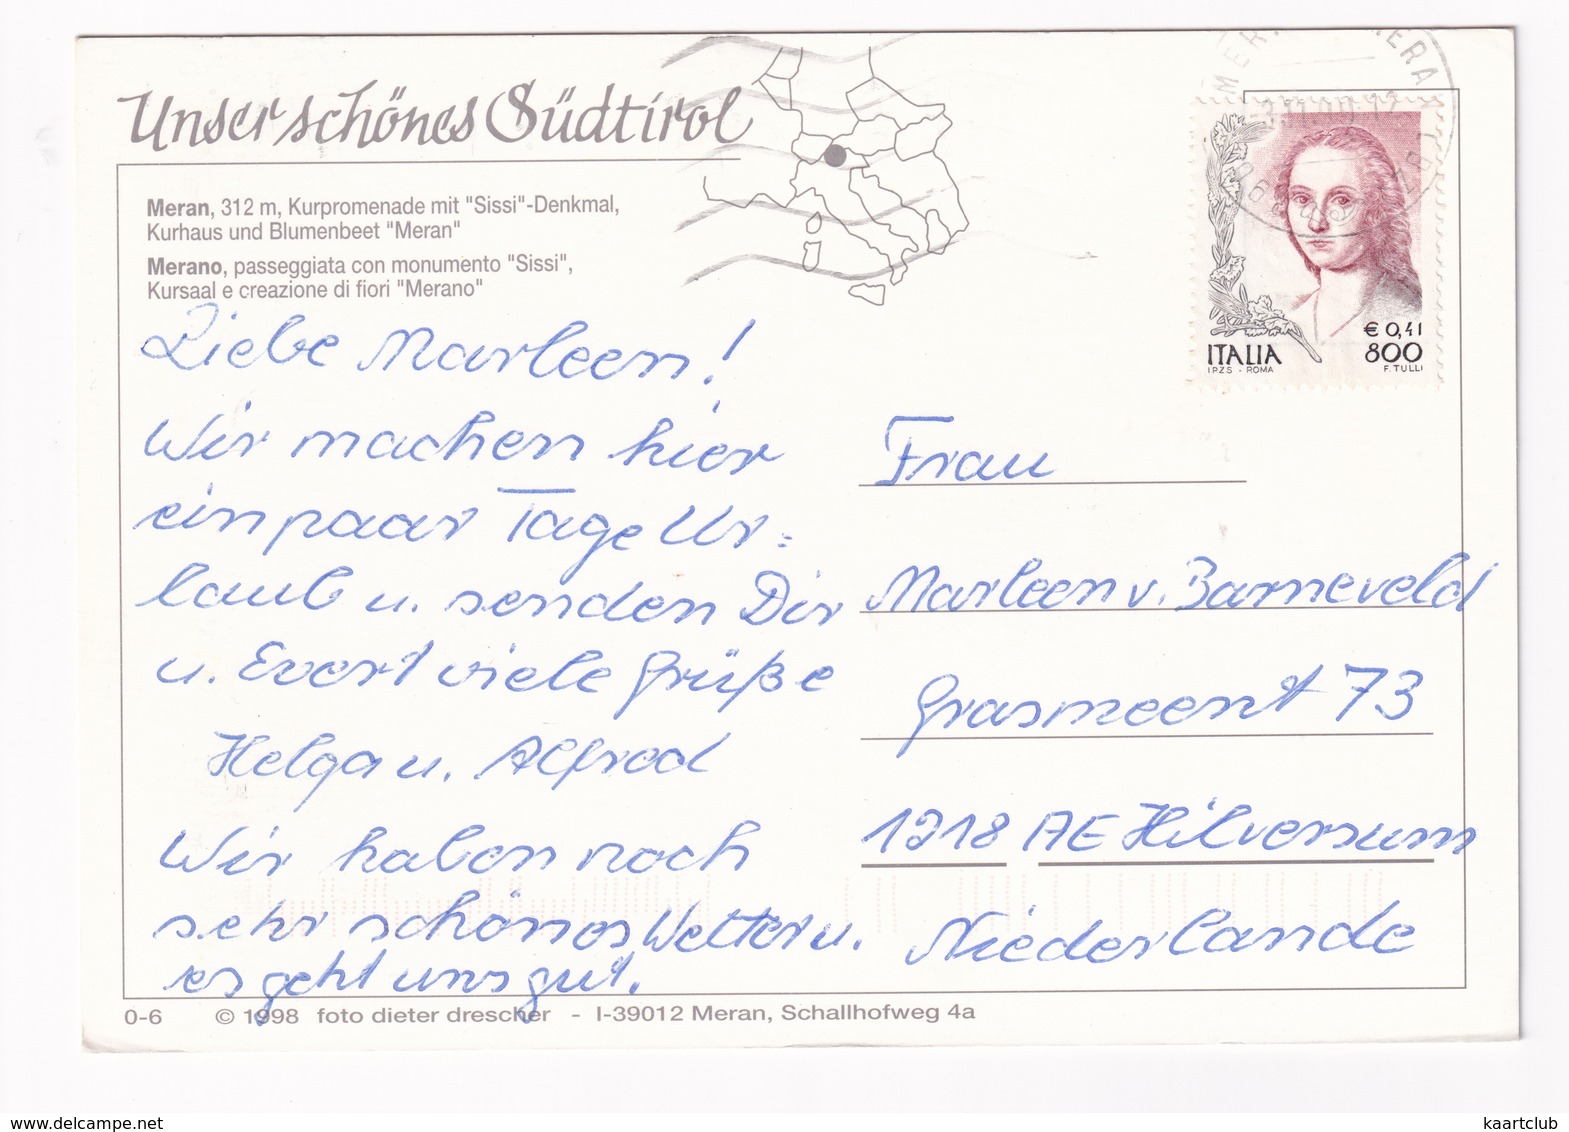 Unser schönes Südtirol
Meran, 312 m, Kurpromenade mit "Sissi"-Denkmal,
Kurhaus und Blumenbeet "Meran"
Merano, passeggiata con monumento "Sissi",
Kursaal e creazione di fiori "Merano"
Liebe Marleen!
Wir machen hier
ein paar Tage Ur=
laub u. senden Dir
u. Evert viele Grüße
Helga u. Alfred
Wir haben noch
sehr schönes Wetter u.
es geht uns gut.
€ 0,41
ITALIA 800
I.P.Z.S. - ROMA F. TULLI
Frau
Marleen v. Barneveld
Grasmeent 73
1218 AE Hilversum
Niederlande
0-6 © 1998 foto dieter drescher - I-39012 Meran, Schallhofweg 4a
www.delcampe.net
kaartclub